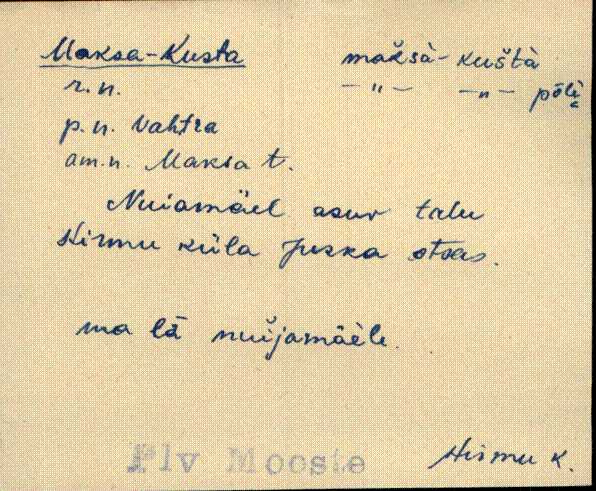 Maksa-Kusta maksà-kuštà
r.n. —"— —"— põlì
p.n. Vahtra
am.n. Maksa t.
Nuiamäel asuv talu
Hirmu küla Juska otsas.
ma lä nuijamäele.
Plv Mooste
Hirmu k.